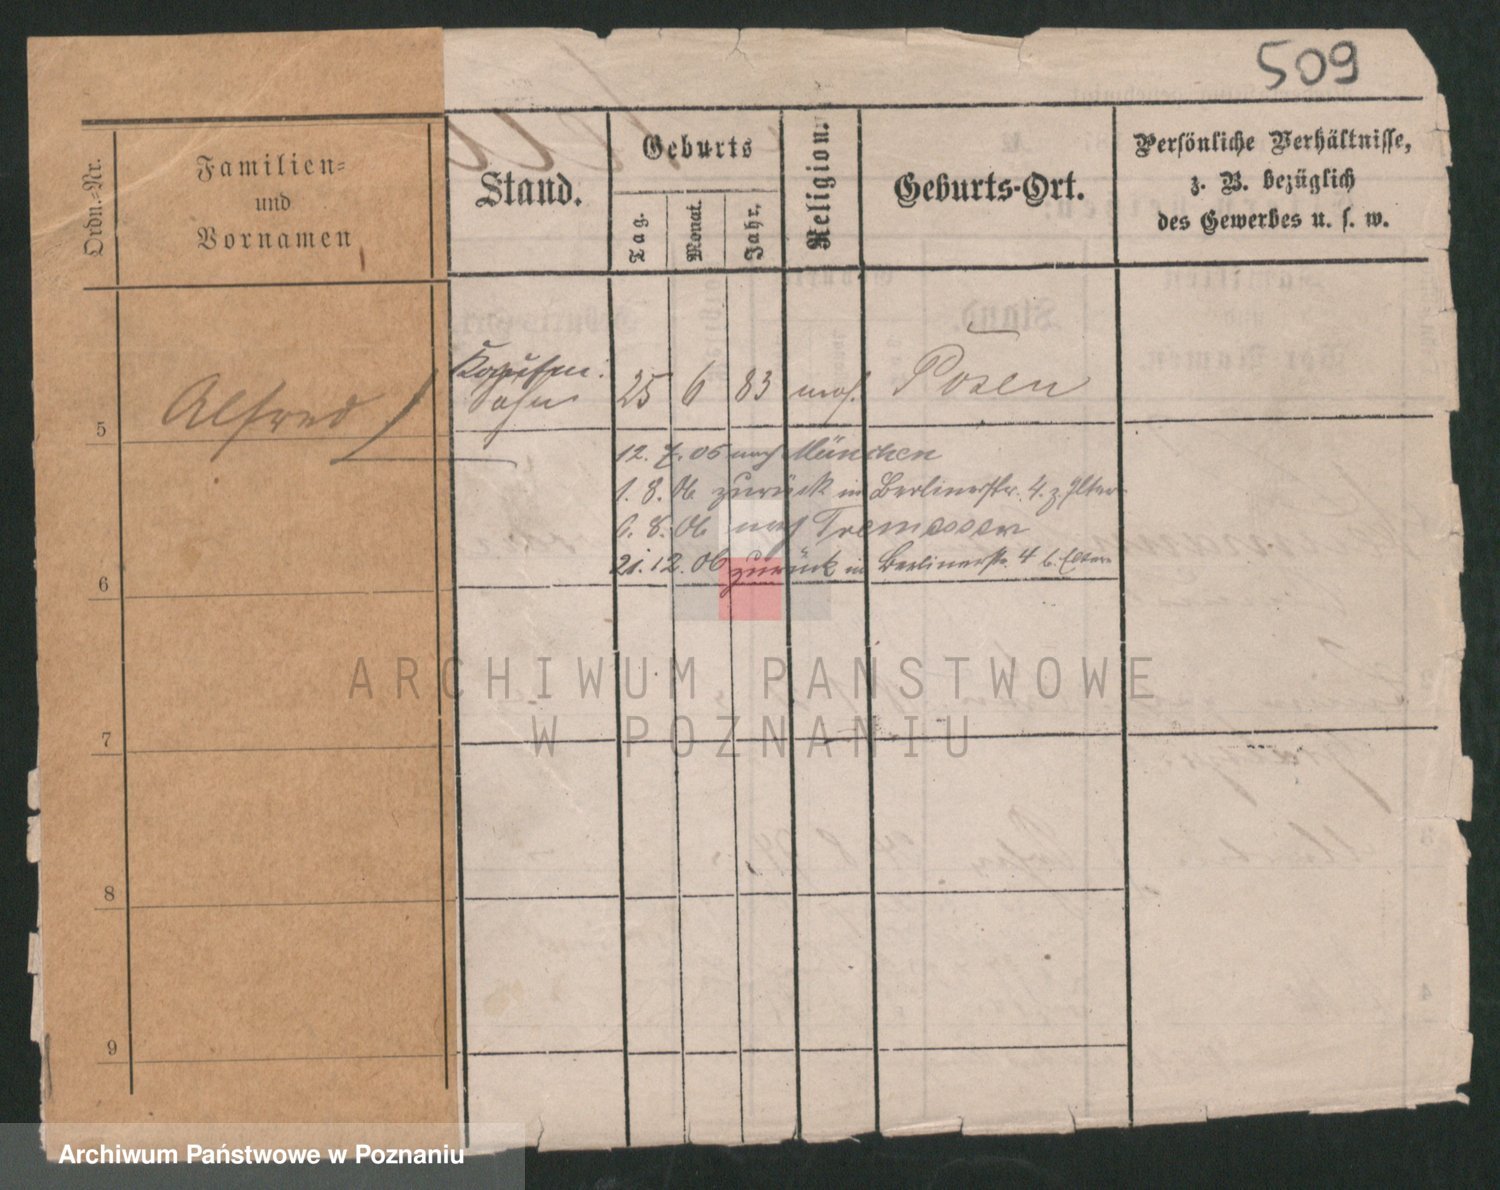 509
Ordn.-Nr.
Familien-
und
Vornamen
Stand.
Geburts
Tag.
Monat.
Jahr.
Religion.
Geburts-Ort.
Persönliche Verhältnisse,
z. B. bezüglich
des Gewerbes u. s. w.
5 Alfred
Sohn 25 6 83 mos. Posen
12. 7. 05 nach München
1. 8. 06 zurück in Berlinerstr. 4. z. Elter
6. 8. 06 nach Tremessen
21. 12. 06 zurück in Berlinerstr. 4 b. Eltern
6
7
8
9
ARCHIWUM PAŃSTWOWE
W POZNANIU
Archiwum Państwowe w Poznaniu